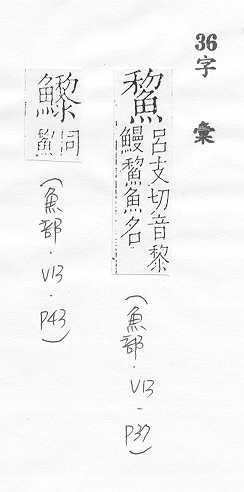 36
字彙
鯬
呂支切音黎
鰻鯬魚名
(魚部.V13.P37)
同
鯬
(魚部.V13.P43)